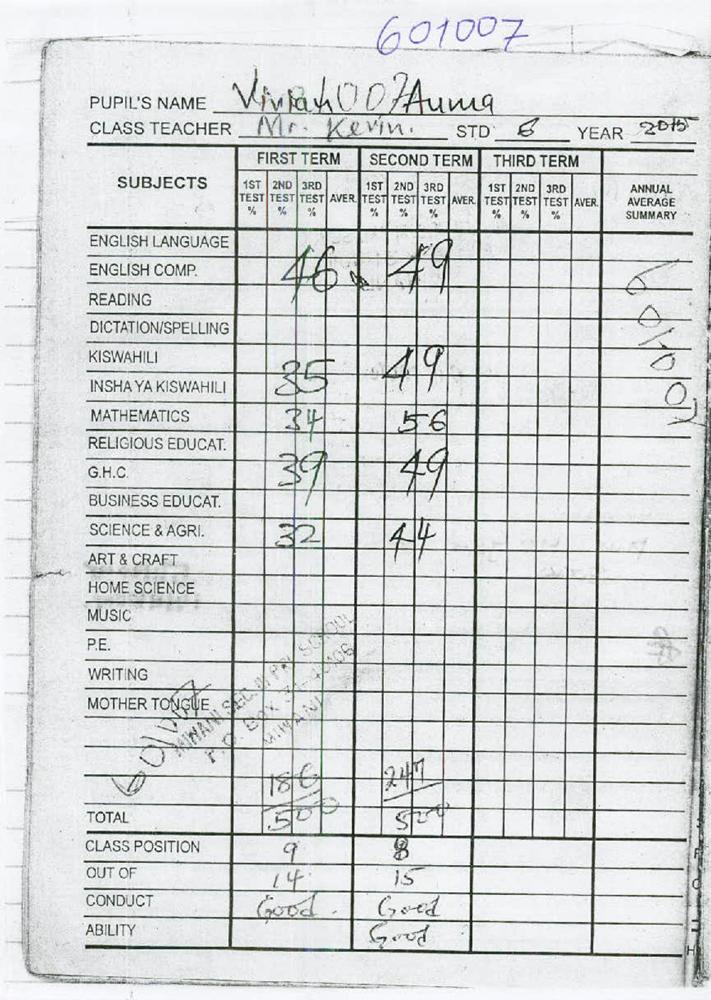 601007
PUPIL'S NAME Vivian 007 Auma
CLASS TEACHER Mr. Kevin. STD 6 YEAR 2015
SUBJECTS FIRST TERM SECOND TERM THIRD TERM ANNUAL AVERAGE SUMMARY
1ST TEST % 2ND TEST % 3RD TEST % AVER. 1ST TEST % 2ND TEST % 3RD TEST % AVER. 1ST TEST % 2ND TEST % 3RD TEST % AVER.
ENGLISH LANGUAGE
ENGLISH COMP. 46 49
READING
601007
DICTATION/SPELLING
KISWAHILI
INSHA YA KISWAHILI 35 49
MATHEMATICS 34 56
RELIGIOUS EDUCAT.
G.H.C. 39 49
BUSINESS EDUCAT.
SCIENCE & AGRI. 32 44
ART & CRAFT
HOME SCIENCE
MUSIC
P.E.
WRITING
MOTHER TONGUE
MIWANI SEC. III PRI SCHOOL
P.O. BOX 40106
MIWANI
186 247
TOTAL 500 500
CLASS POSITION 9 8
OUT OF 14 15
CONDUCT Good. Good
ABILITY Good